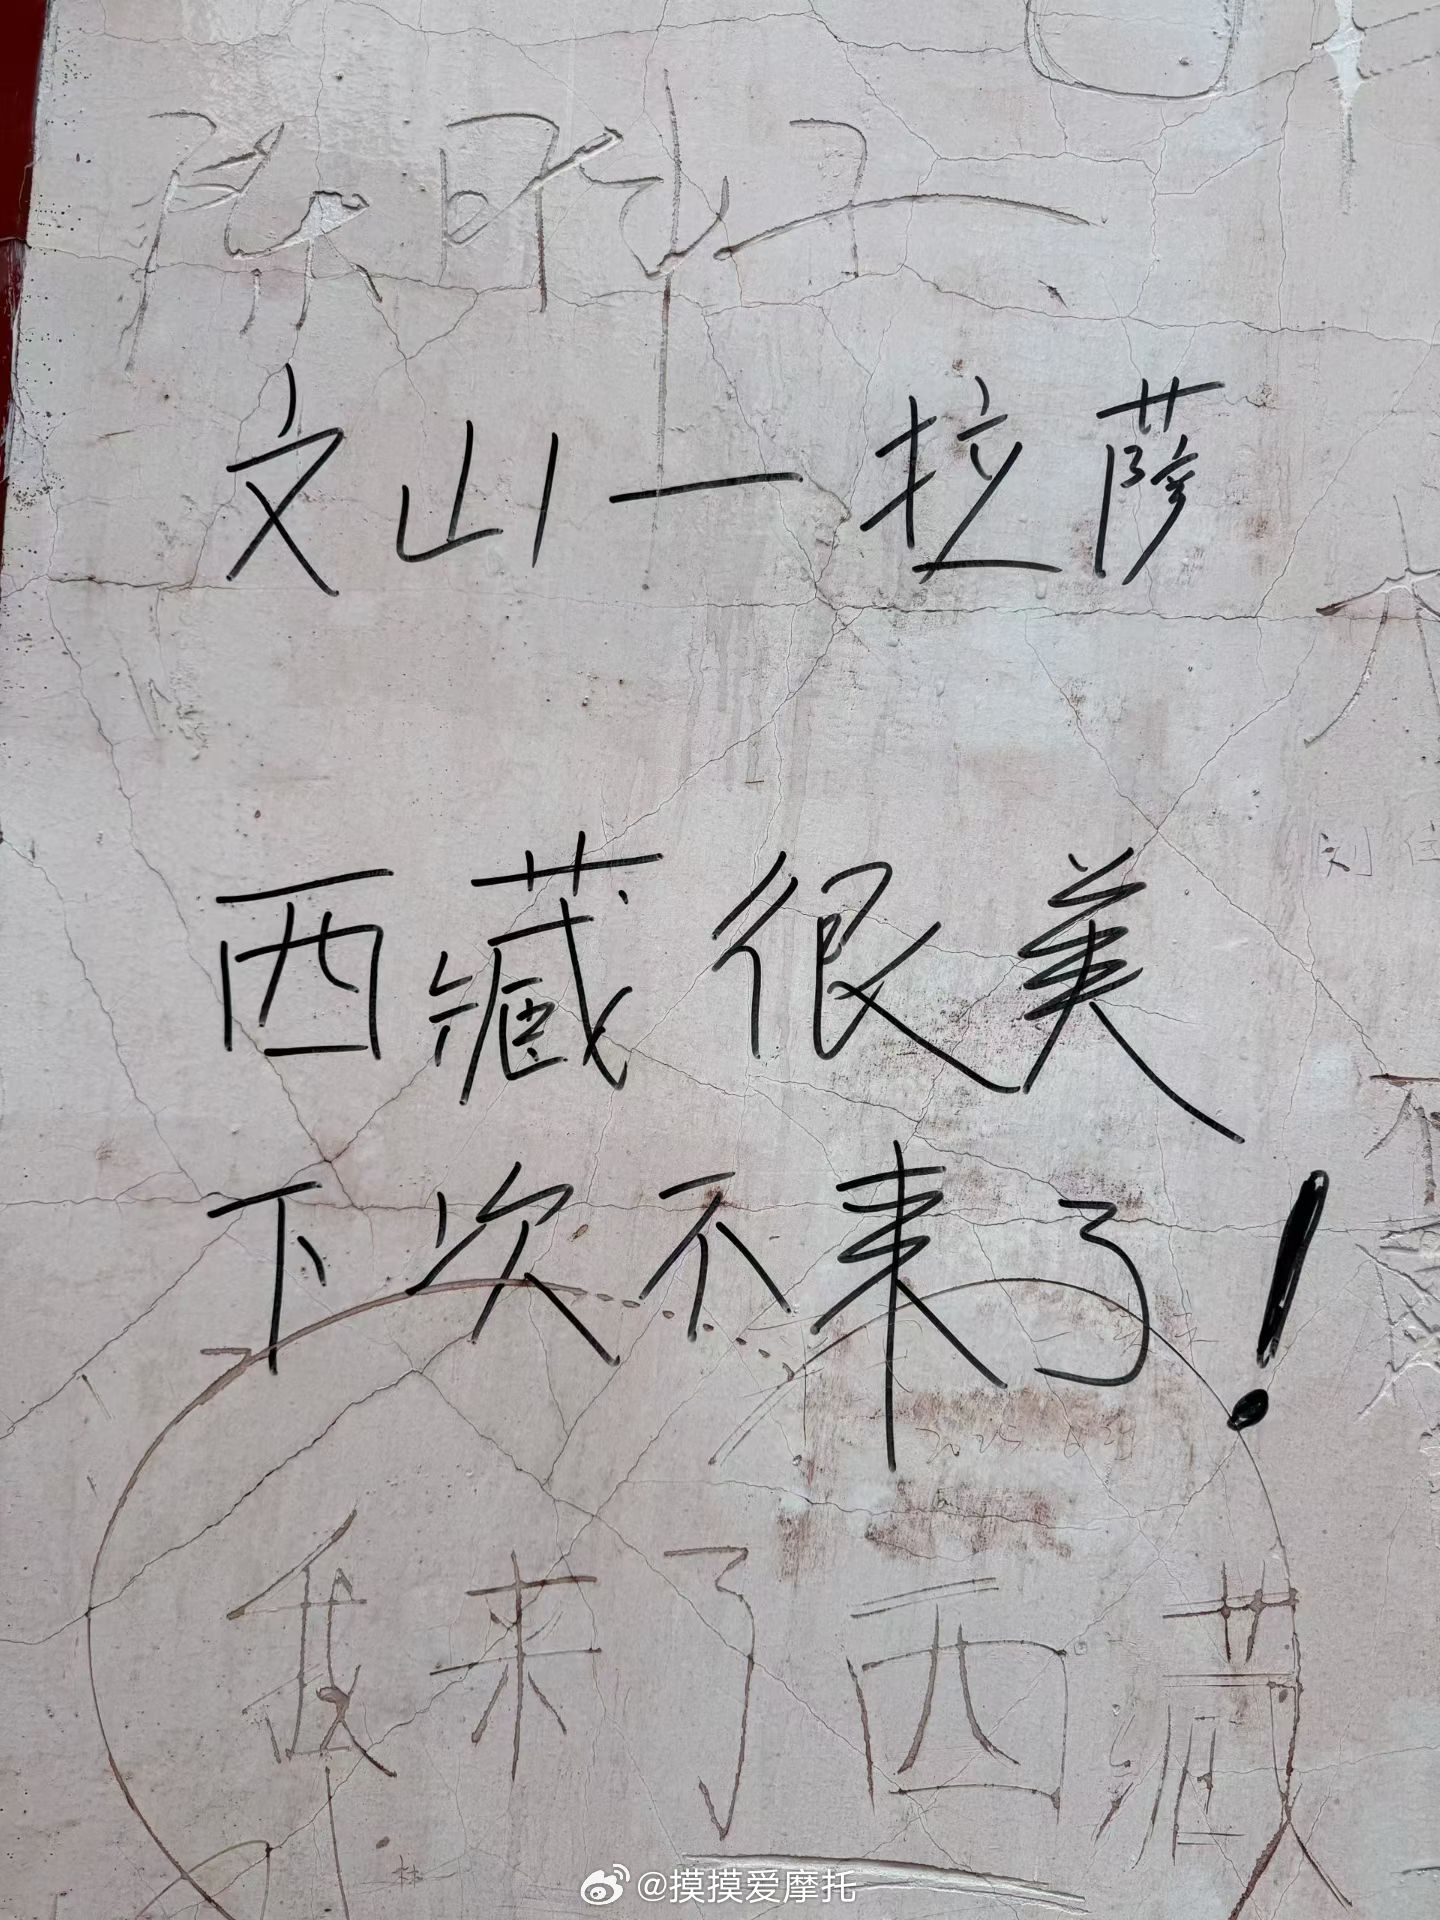 文山一拉萨
西藏很美
下次不来了！
我来了西藏
林
@摸摸爱摩托